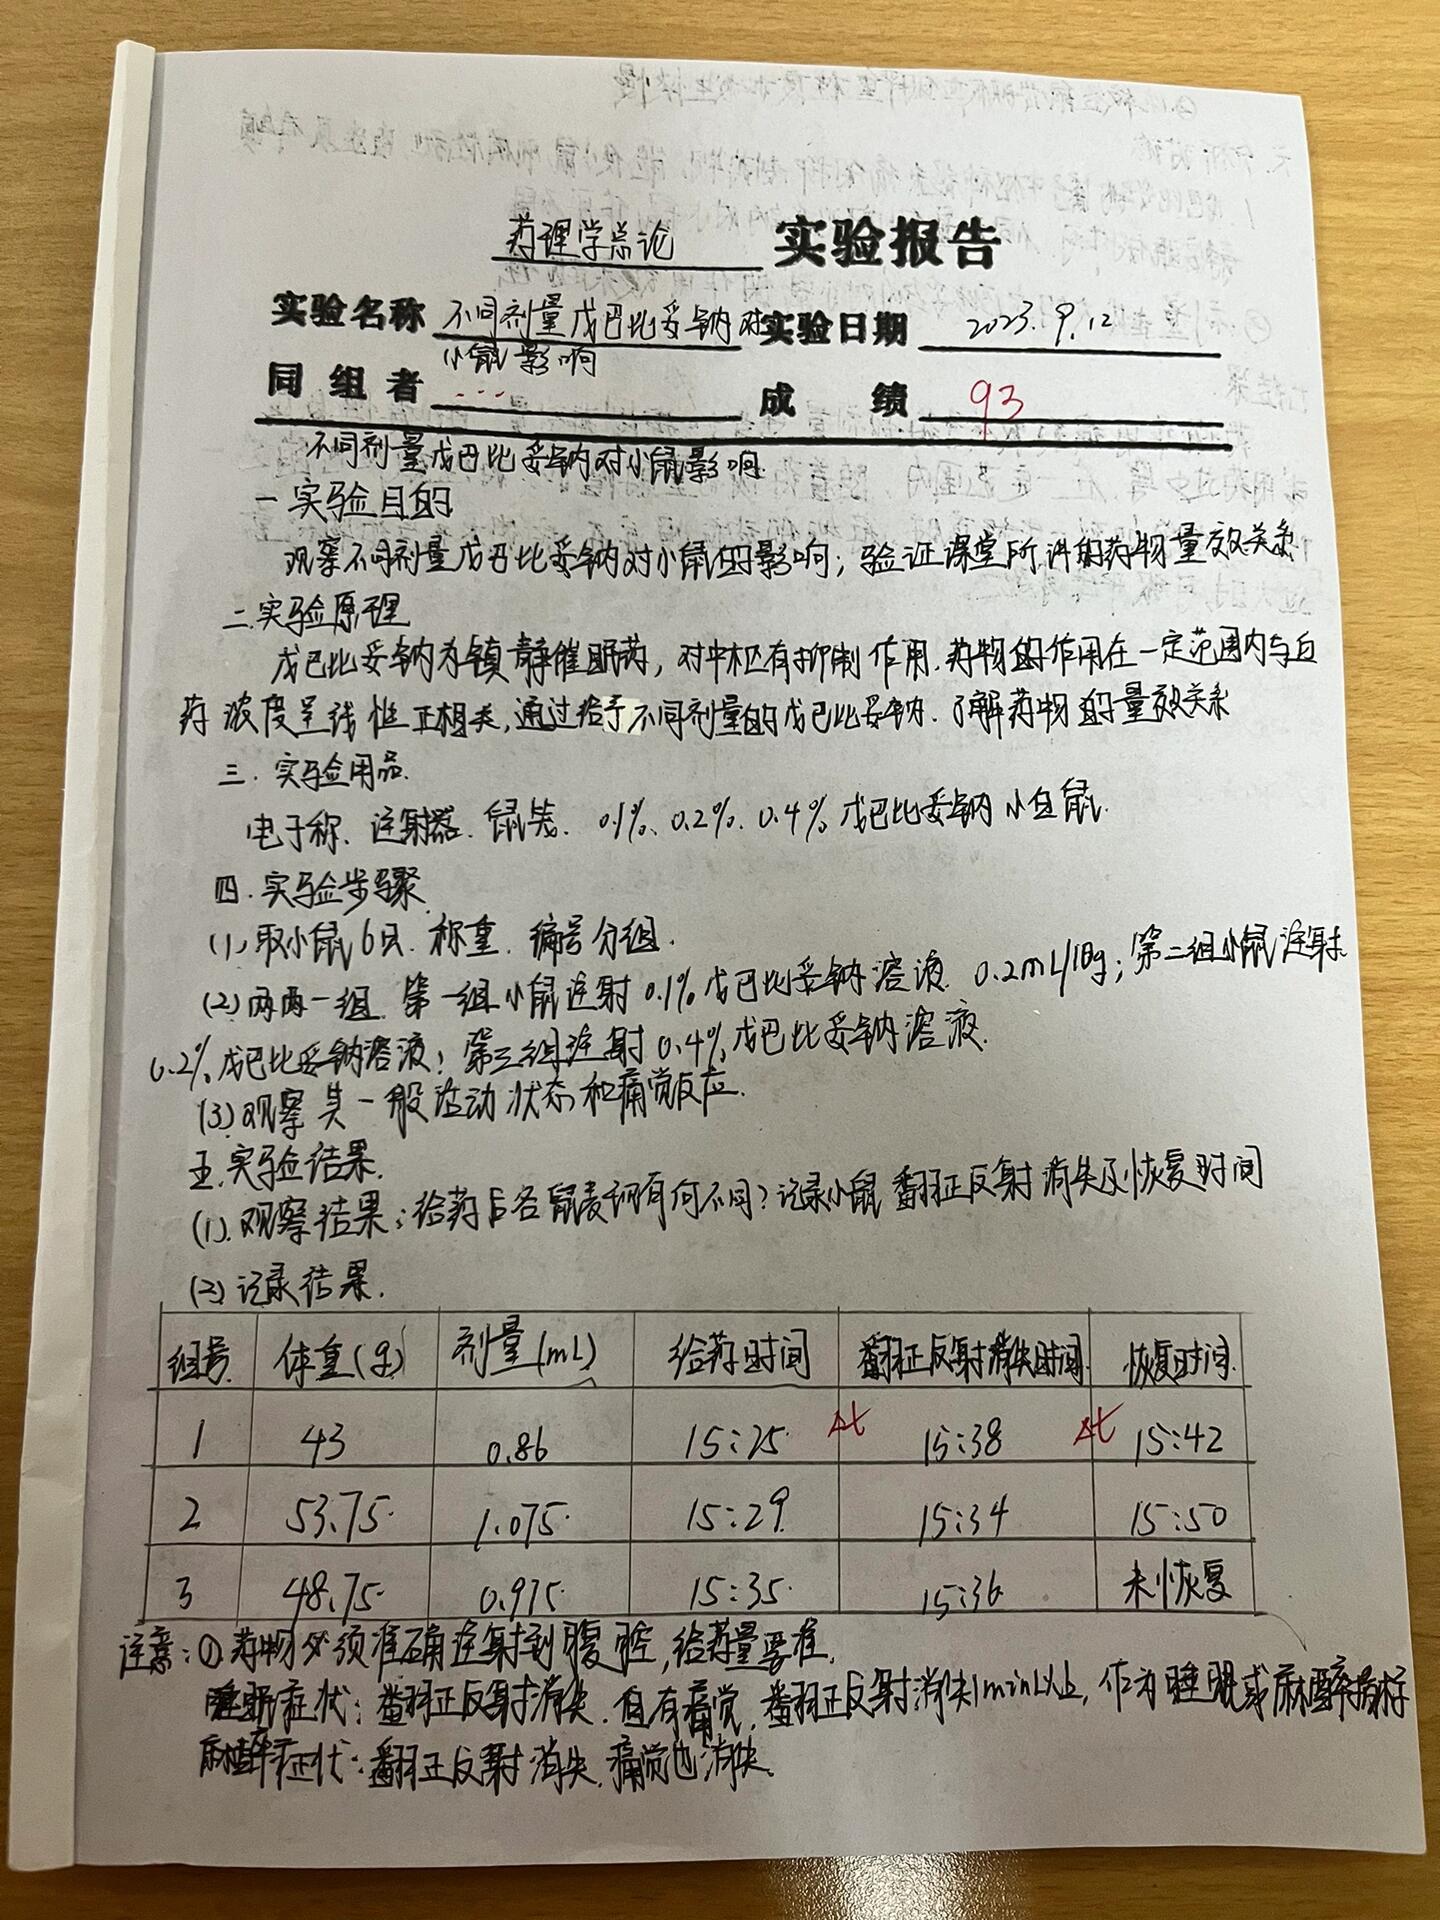 药理学总论 实验报告
实验名称 不同剂量戊巴比妥钠对小鼠影响 实验日期 2023.9.12
同组者 ... 成绩 93
不同剂量戊巴比妥钠对小鼠影响.
一 实验目的
观察不同剂量戊巴比妥钠对小鼠的影响；验证课堂所讲的药物量效关系.
二.实验原理
戊巴比妥钠为镇静催眠药，对中枢有抑制作用.药物的作用在一定范围内与血
药浓度呈线性正相关，通过给予不同剂量的戊巴比妥钠.了解药物的量效关系
三.实验用品.
电子称.注射器.鼠笼.0.1%、0.2%、0.4%戊巴比妥钠 小白鼠.
四.实验步骤.
(1)取小鼠6只.称重.编号分组.
(2)两两一组.第一组小鼠注射0.1%戊巴比妥钠溶液.0.2mL/10g；第二组小鼠注射
0.2%戊巴比妥钠溶液；第三组注射0.4%戊巴比妥钠溶液.
(3)观察其一般活动状态和痛觉反应.
五.实验结果.
(1).观察结果：给药后各鼠表现有何不同？记录小鼠翻正反射消失及恢复时间
(2)记录结果.
组号. 体重(g) 剂量(mL) 给药时间 翻正反射消失时间 恢复时间.
1 43 0.86 15:25 Δt 15:38 Δt 15:42
2 53.75 1.075 15:29 15:34 15:50
3 48.75 0.975 15:35 15:36 未恢复
注意：①.药物必须准确注射到腹腔，给药量要准.
睡眠症状：翻正反射消失.但有痛觉，翻正反射消失1min以上，作为睡眠或麻醉指标
麻醉症状：翻正反射消失.痛觉也消失.